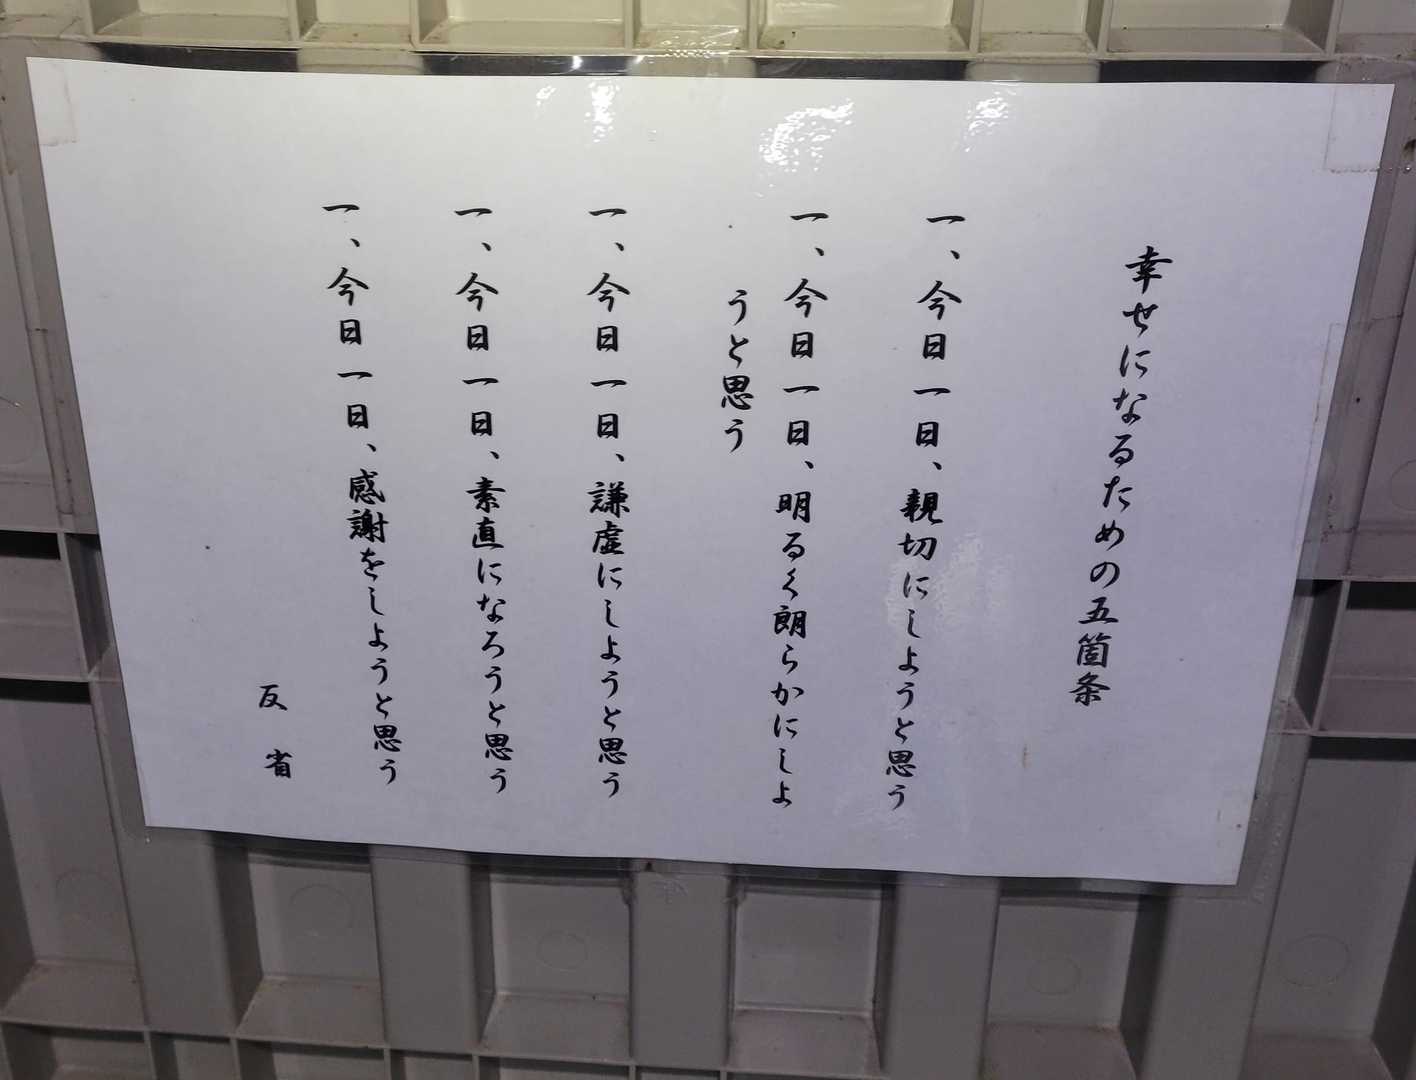 幸せになるための五箇条
一、今日一日、親切にしようと思う
一、今日一日、明るく朗らかにしよ
うと思う
一、今日一日、謙虚にしようと思う
一、今日一日、素直になろうと思う
一、今日一日、感謝をしようと思う
反　省